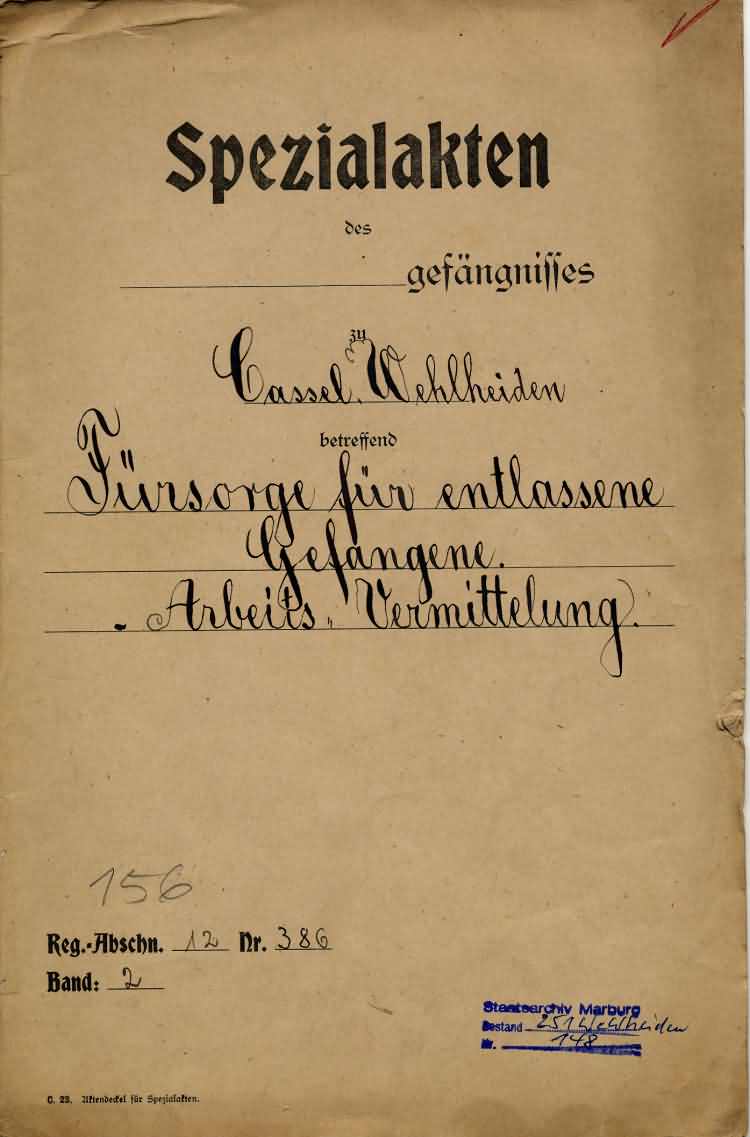 Spezialakten
des
gefängnisses
zu
Cassel-Wehlheiden
betreffend
Fürsorge für entlassene
Gefangene.
- Arbeits-Vermittelung).
156
Reg.-Abschn. 12 Nr. 386
Band: 2
Staatsarchiv Marburg
Bestand 251 Wehlheiden
Nr. 148
C. 23. Aktendeckel für Spezialakten.